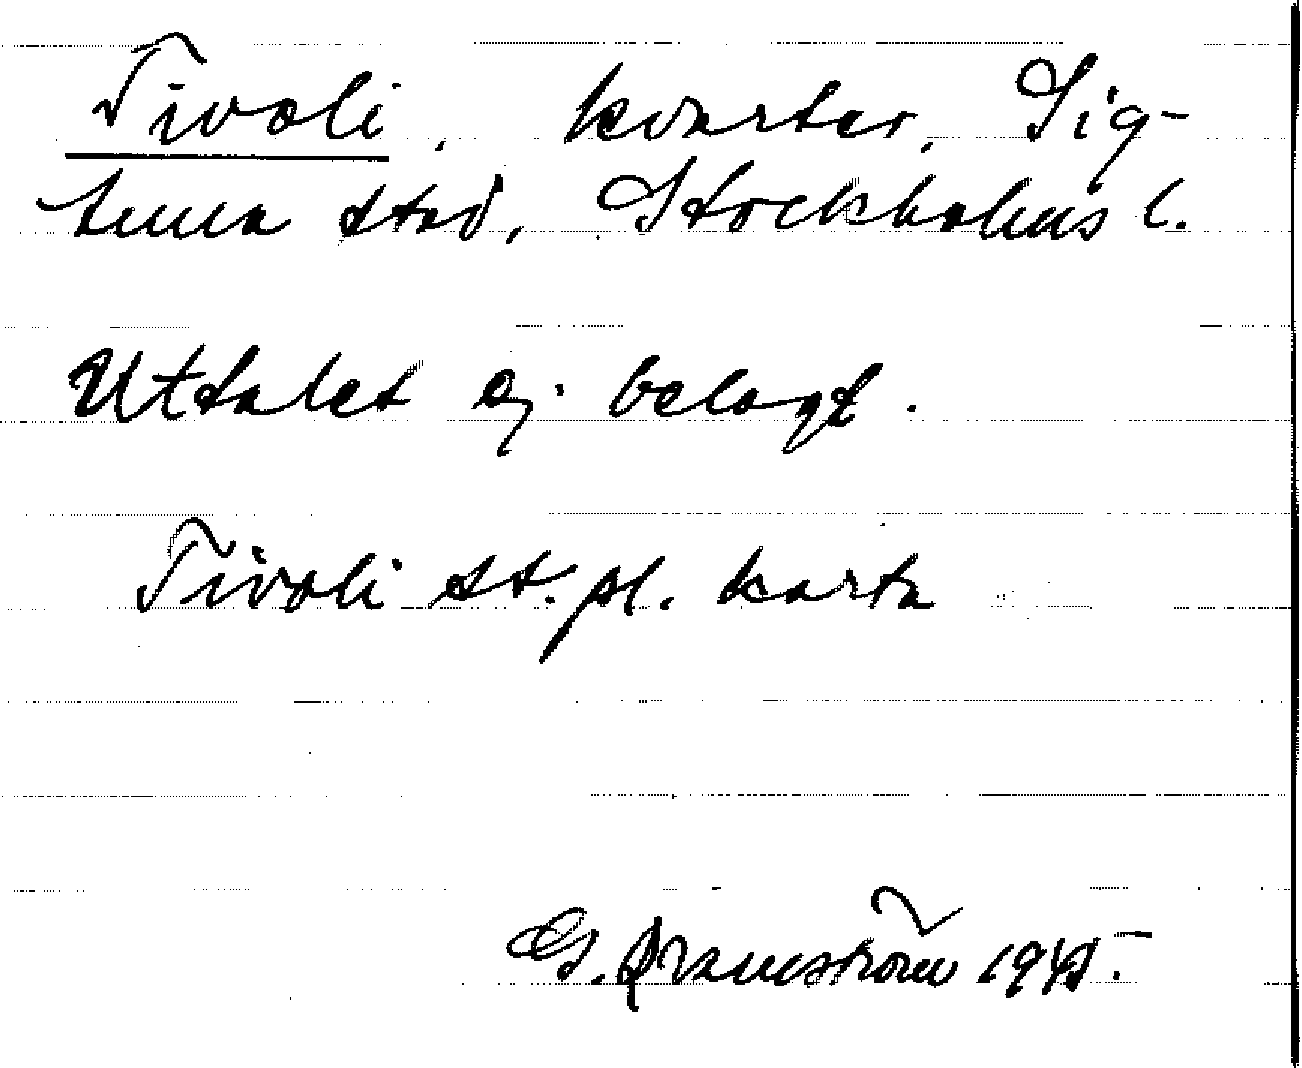 Tivoli, kvarter, Sig-
tuna stad, Stockholms l.
Uttalet ej belagt.
Tivoli st. pl. karta
G. Franzström 1945.